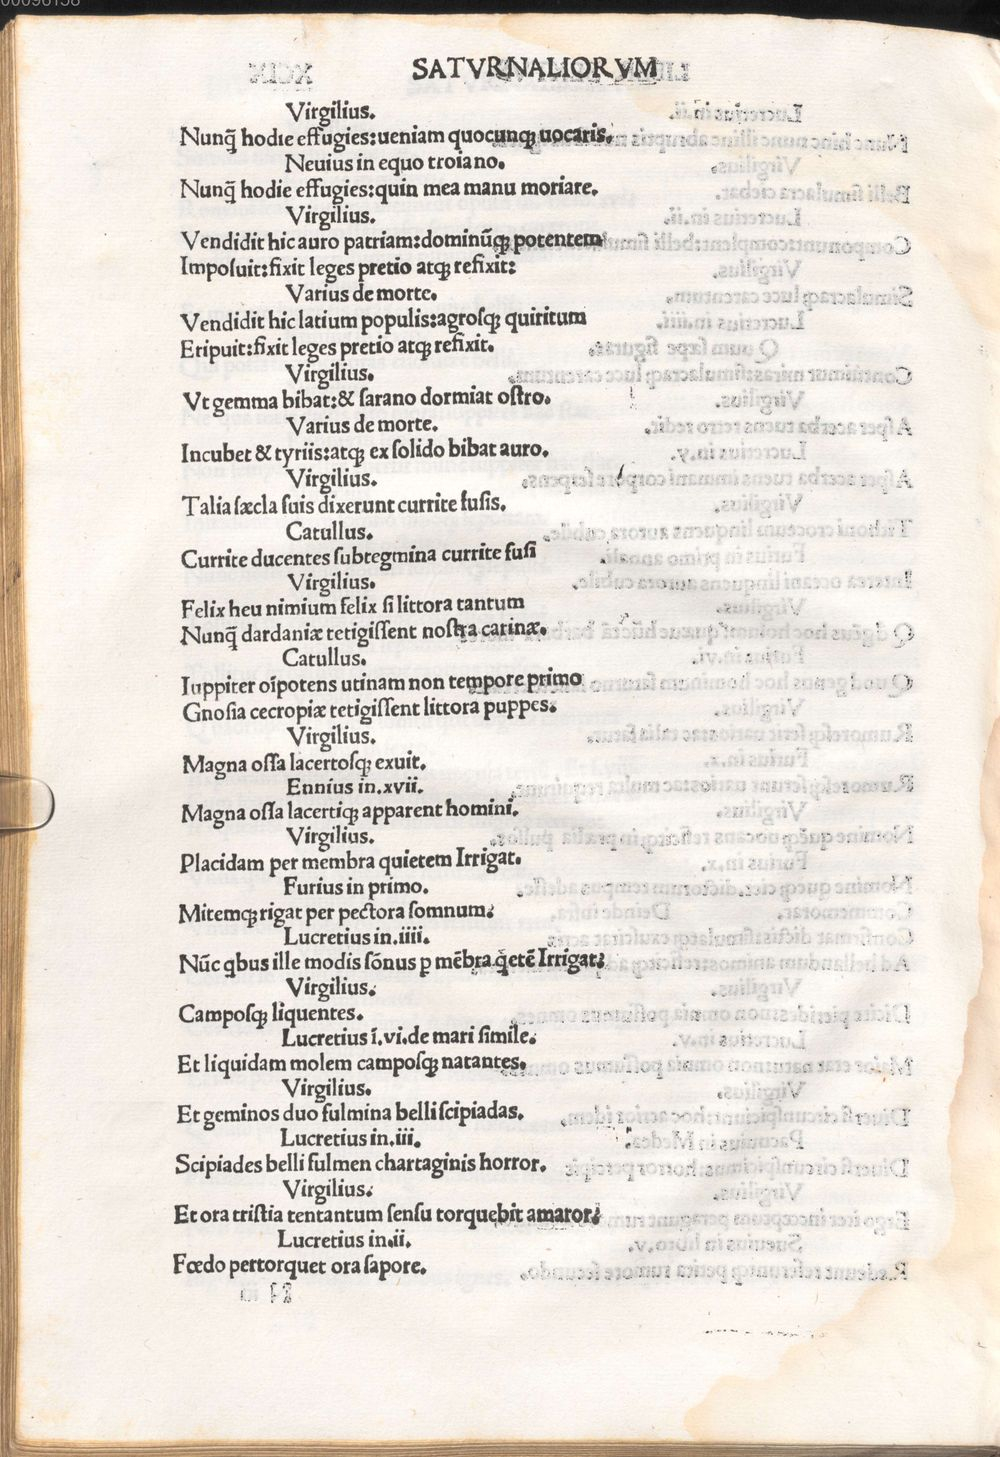 SATVRNALIORVM
Virgilius.
Nunq̃ hodie effugies:ueniam quocunq; uocaris.
Neuius in equo troiano.
Nunq̃ hodie effugies:quin mea manu moriare.
Virgilius.
Vendidit hic auro patriam:dominũq; potentem
Imposuit:fixit leges pretio atq; refixit:
Varius de morte.
Vendidit hic latium populis:agrosq; quiritum
Eripuit:fixit leges pretio atq; refixit.
Virgilius.
Vt gemma bibat:& sarano dormiat ostro.
Varius de morte.
Incubet & tyriis:atq; ex solido bibat auro.
Virgilius.
Talia sæcla suis dixerunt currite fusis.
Catullus.
Currite ducentes subtegmina currite fusi
Virgilius.
Felix heu nimium felix si littora tantum
Nunq̃ dardaniæ tetigissent nostra carinæ.
Catullus.
Iuppiter oĩpotens utinam non tempore primo
Gnosia cecropiæ tetigissent littora puppes.
Virgilius.
Magna ossa lacertosq; exuit.
Ennius in.xvii.
Magna ossa lacertiq; apparent homini.
Virgilius.
Placidam per membra quietem Irrigat.
Furius in primo.
Mitemq; rigat per pectora somnum.
Lucretius in.iiii.
Nũc qbus ille modis sõnus p mẽbra q̃etẽ Irrigat.
Virgilius.
Camposq; liquentes.
Lucretius ĩ.vi.de mari simile.
Et liquidam molem camposq; natantes.
Virgilius.
Et geminos duo fulmina belli scipiadas.
Lucretius in.iii.
Scipiades belli fulmen chartaginis horror.
Virgilius.
Et ora tristia tentantum sensu torquebit amaror.
Lucretius in.ii.
Fœdo pertorquet ora sapore.